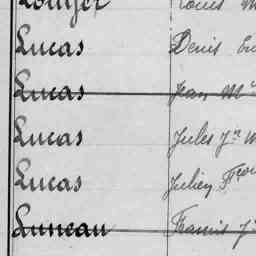 Lucas Denis
Lucas Jean M
Lucas Jules Jn M
Lucas Julien Fçois
Luneau Francis J